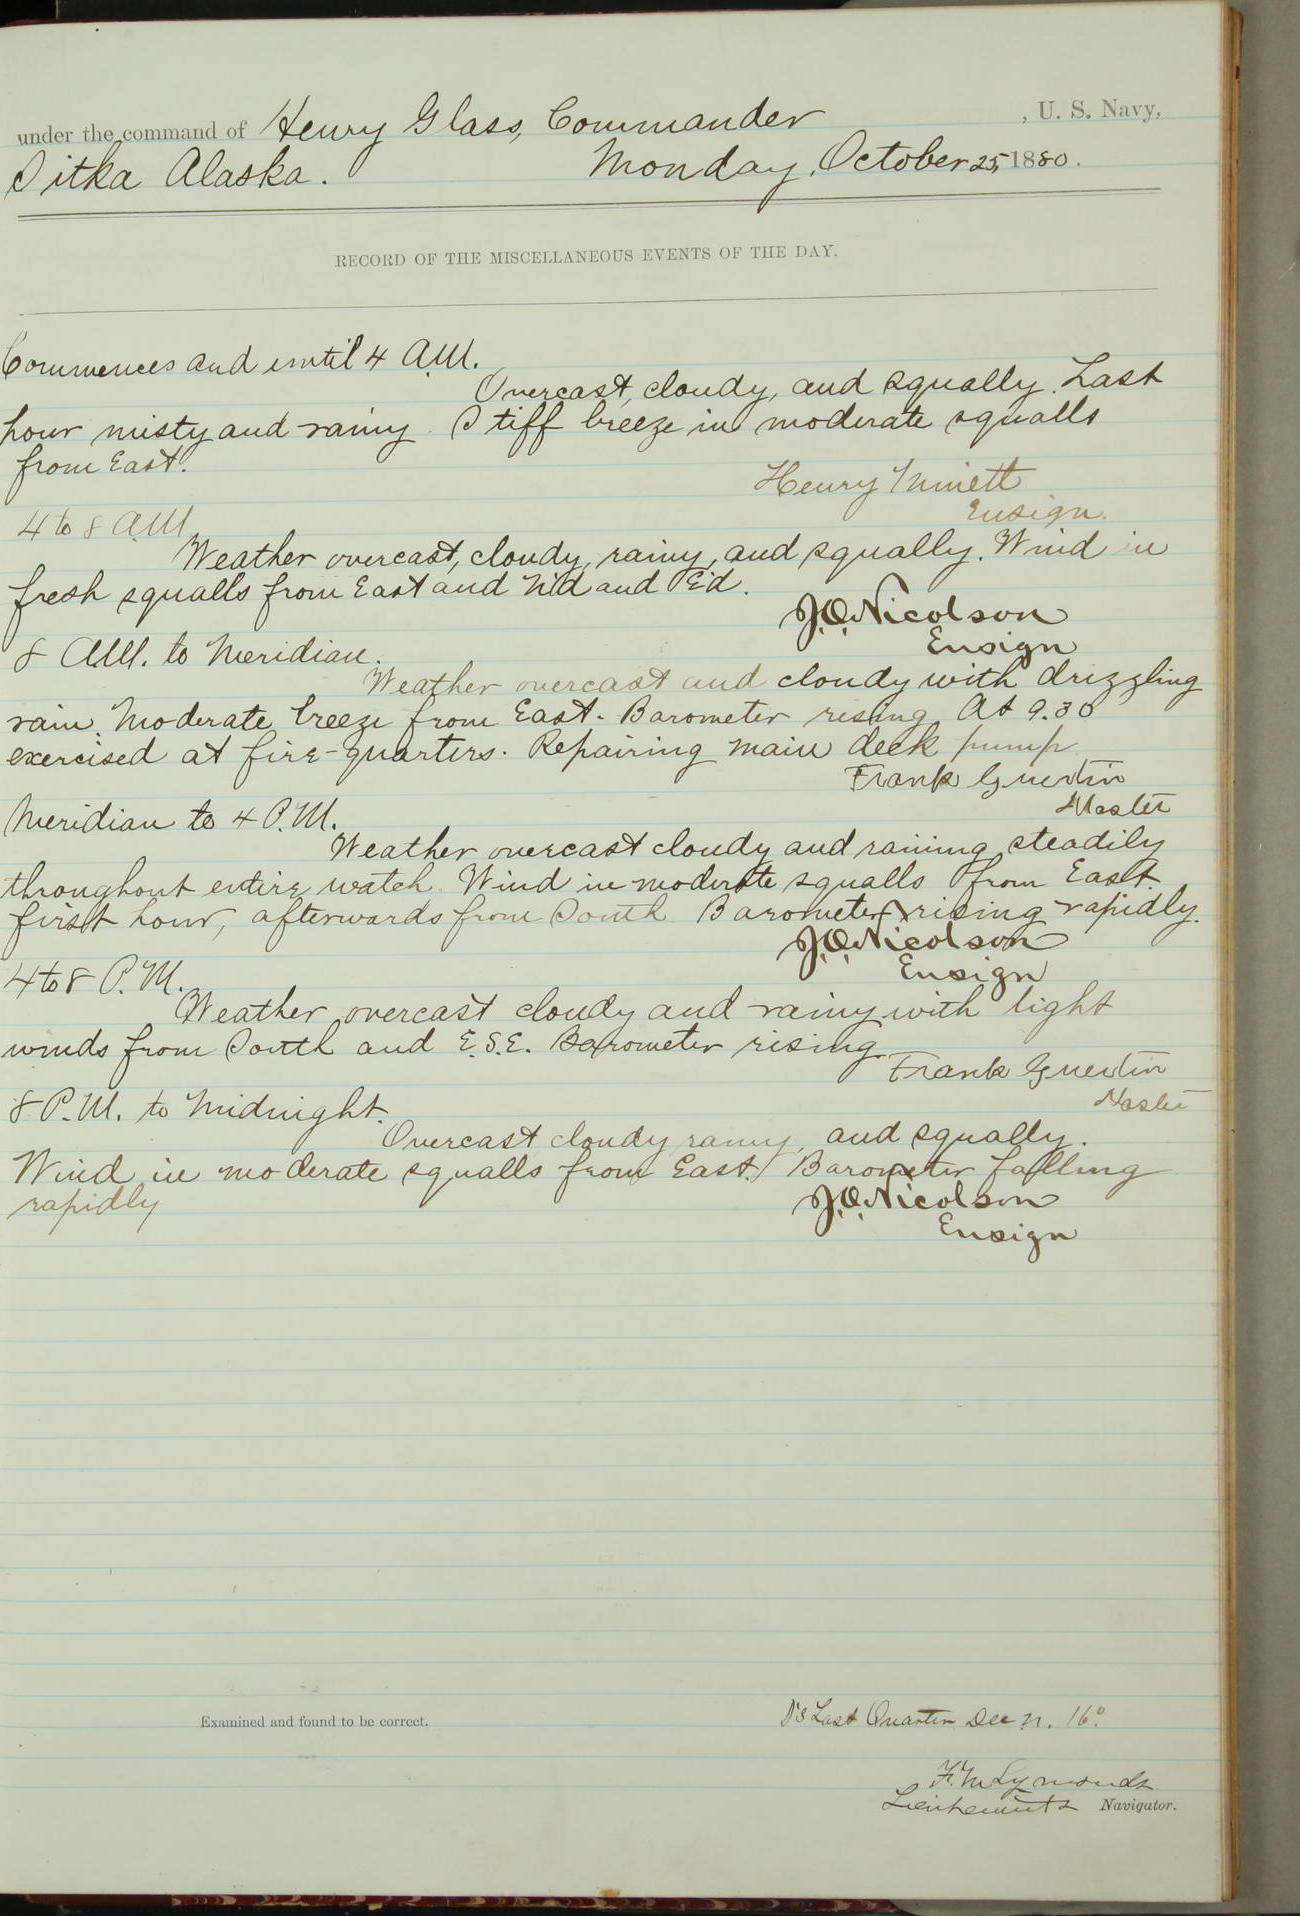 under the command of Henry Glass, Commander , U. S. Navy,
Sitka Alaska. Monday, October 25, 1880.
RECORD OF THE MISCELLANEOUS EVENTS OF THE DAY.
Commences and until 4 A.M.
Overcast, cloudy, and squally. Last
hour misty and rainy. Stiff breeze in moderate squalls
from East.
Henry Minett
Ensign.
4 to 8 A.M.
Weather overcast, cloudy, rainy, and squally. Wind in
fresh squalls from East and N'd and E'd.
J.O. Nicolson
Ensign
8 A.M. to Meridian.
Weather overcast and cloudy with drizzling
rain. Moderate breeze from East. Barometer rising. At 9.30
exercised at fire-quarters. Repairing main deck pump
Frank Guertin
Master
Meridian to 4 P.M.
Weather overcast cloudy and raining steadily
throughout entire watch. Wind in moderate squalls from East
first hour, afterwards from South. Barometer rising rapidly.
J.O. Nicolson
Ensign
4 to 8 P.M.
Weather overcast cloudy and rainy with light
winds from South and E.S.E. Barometer rising
Frank Guertin
Master
8 P.M. to Midnight.
Overcast cloudy rainy and squally.
Wind in moderate squalls from East. Barometer falling
rapidly
J.O. Nicolson
Ensign
Examined and found to be correct.
Last Quarter Dec N. 16°.
F. M. Symonds
Lieutenant Navigator.